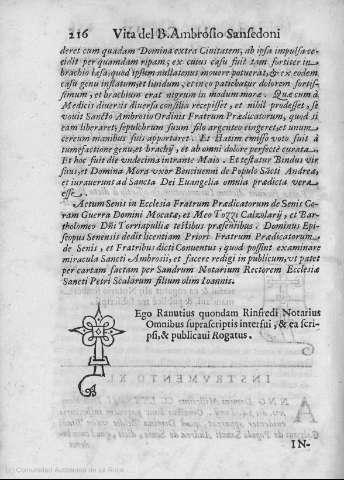 216 Vita del B. Ambrosio Sansedoni
deret cum quadam Domina extra Ciuitatem, ab ipsa impulsa ce-
cidit per quamdam ripam; ex cuius casu fuit tam fortiter in
brachio læsa, quod ipsum nullatenus mouere poterat, & ex eodem
casu genu inflatum, et liuidum, et in eo patiebatur dolorem fortis-
simum, et brachium erat nigrum in modum moræ. Quæ cum à
Medicis diuersis diuersa consilia recepisset, et nihil prodesset, se
vouit Sancto Ambrosio Ordinis Fratrum Prædicatorum, quod si
eam liberaret, sepulchrum suum filo argenteo cingeret, et unum
cereum manibus suis apportaret. Et statim emisso voto fuit à
tumefactione genu, et brachij, et ab omni dolore perfectè curata.
Et hoc fuit die undecima intrante Maio. Et testatur Bindus vir
sius, et Domina Mora vxor Benciuenni de Populo Sãcti Andreæ,
et iurauerunt ad Sancta Dei Euangelia omnia prædicta vera
esse.
Actum Senis in Ecclesia Fratrum Prædicatorum de Senis Co-
ram Guerra Domini Mocatæ, et Meo Tozzi Calzolarij, et Bar-
tholomeo Dñi Torriapullia testibus præsentibus. Dominus Epi-
scopus Senensis dedit licentiam Priori Fratrum Prædicatorum
de Senis, et Fratribus dicti Conuentus, quod possint examinare
miracula Sancti Ambrosij, et facere redigi in publicum, vt patet
per cartam factam per Sandrum Notarium Rectorem Ecclesiæ
Sancti Petri Scalarum filium olim Ioannis.
Ego Ranutius quondam Rinfredi Notarius
Omnibus suprascriptis interfui, & ea scri-
psi, & publicaui Rogatus.
IN-
© Comunidad Autónoma de La Rioja